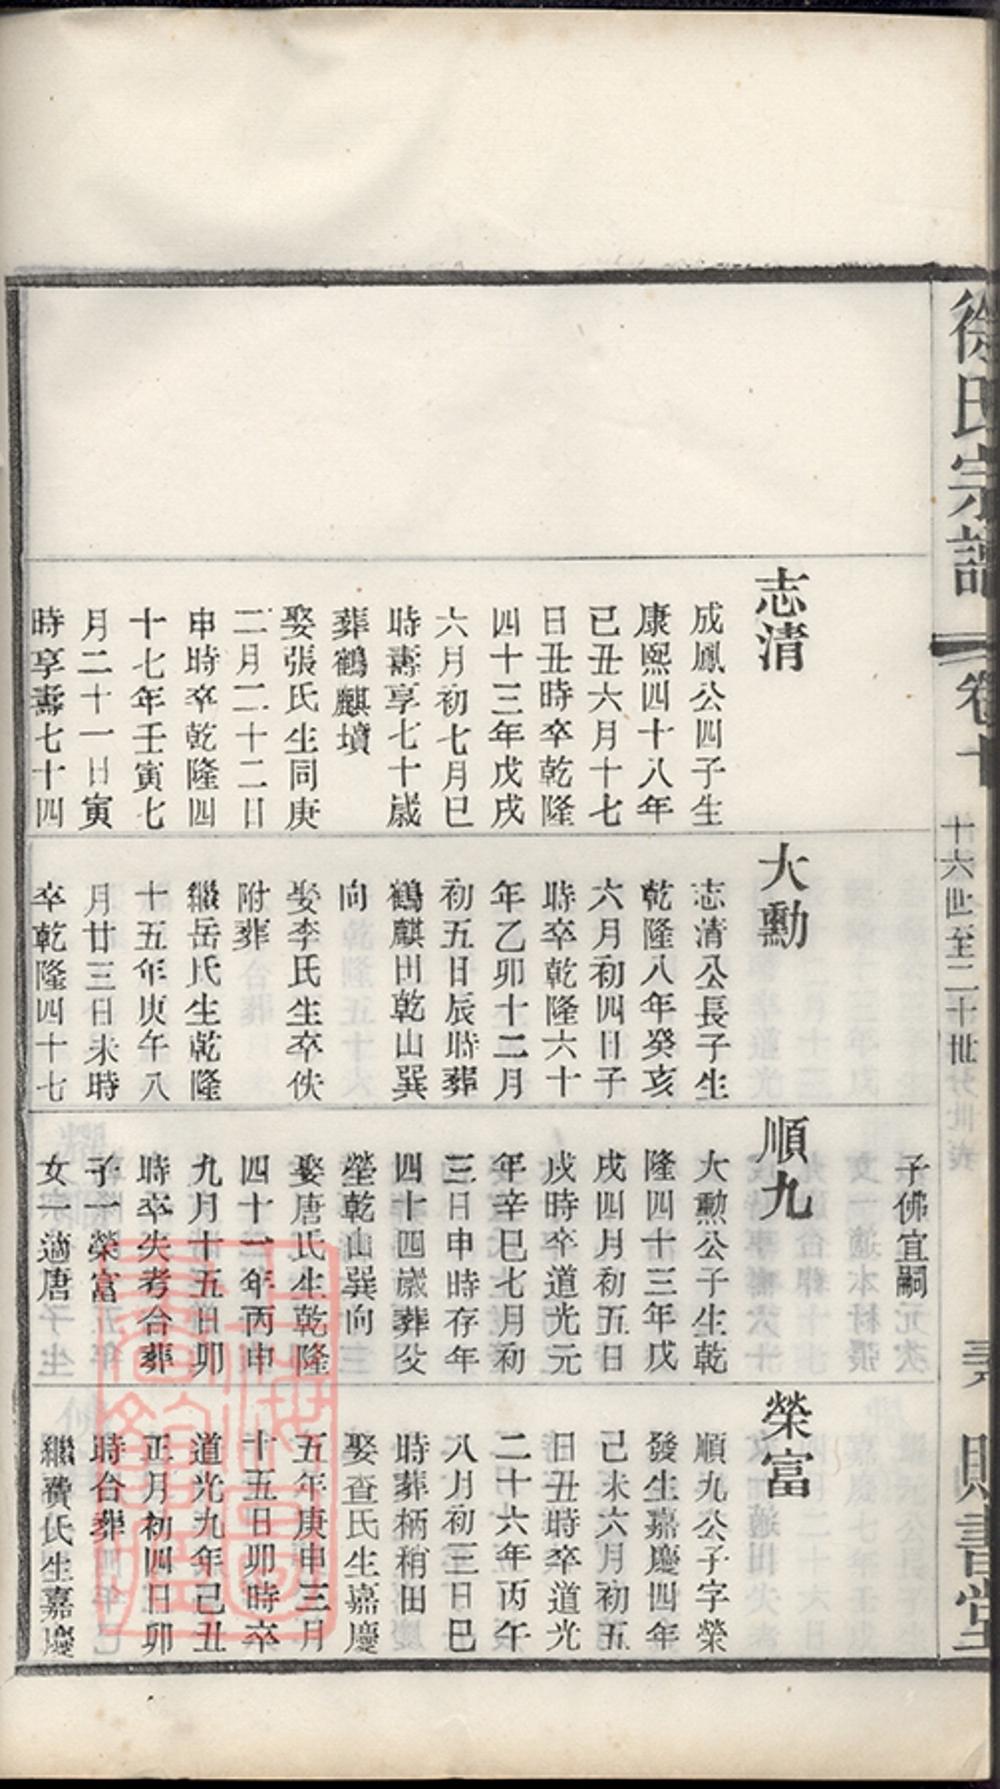 徐氏宗譜
卷十
十六世至二十世
賜書堂
子佛宜嗣
志清
成鳳公四子生
康熙四十八年
已丑六月十七
日丑時卒乾隆
四十三年戊戌
六月初七月巳
時壽享七十歲
葬鶴麒墳
娶張氏生同庚
二月二十二日
申時卒乾隆四
十七年壬寅七
月二十一日寅
時享壽七十四
大勳
志清公長子生
乾隆八年癸亥
六月初四日子
時卒乾隆六十
年乙卯十二月
初五日辰時葬
鶴麒田乾山巽
向
娶李氏生卒佚
附葬
繼岳氏生乾隆
十五年庚午八
月廿三日未時
卒乾隆四十七
順九
大勲公子生乾
隆四十三年戊
戌四月初五日
戌時卒道光元
年辛巳七月初
三日申時存年
四十四歲葬父
塋乾山巽向
娶唐氏生乾隆
四十一年丙申
九月十五日卯
時卒失考合葬
子一榮富
女一適唐
榮富
順九公子字榮
發生嘉慶四年
己未六月初五
日丑時卒道光
二十六年丙午
八月初三日巳
時葬柄稍田
娶查氏生嘉慶
五年庚申三月
十五日卯時卒
道光九年己丑
正月初四日卯
時合葬
繼費氏生嘉慶